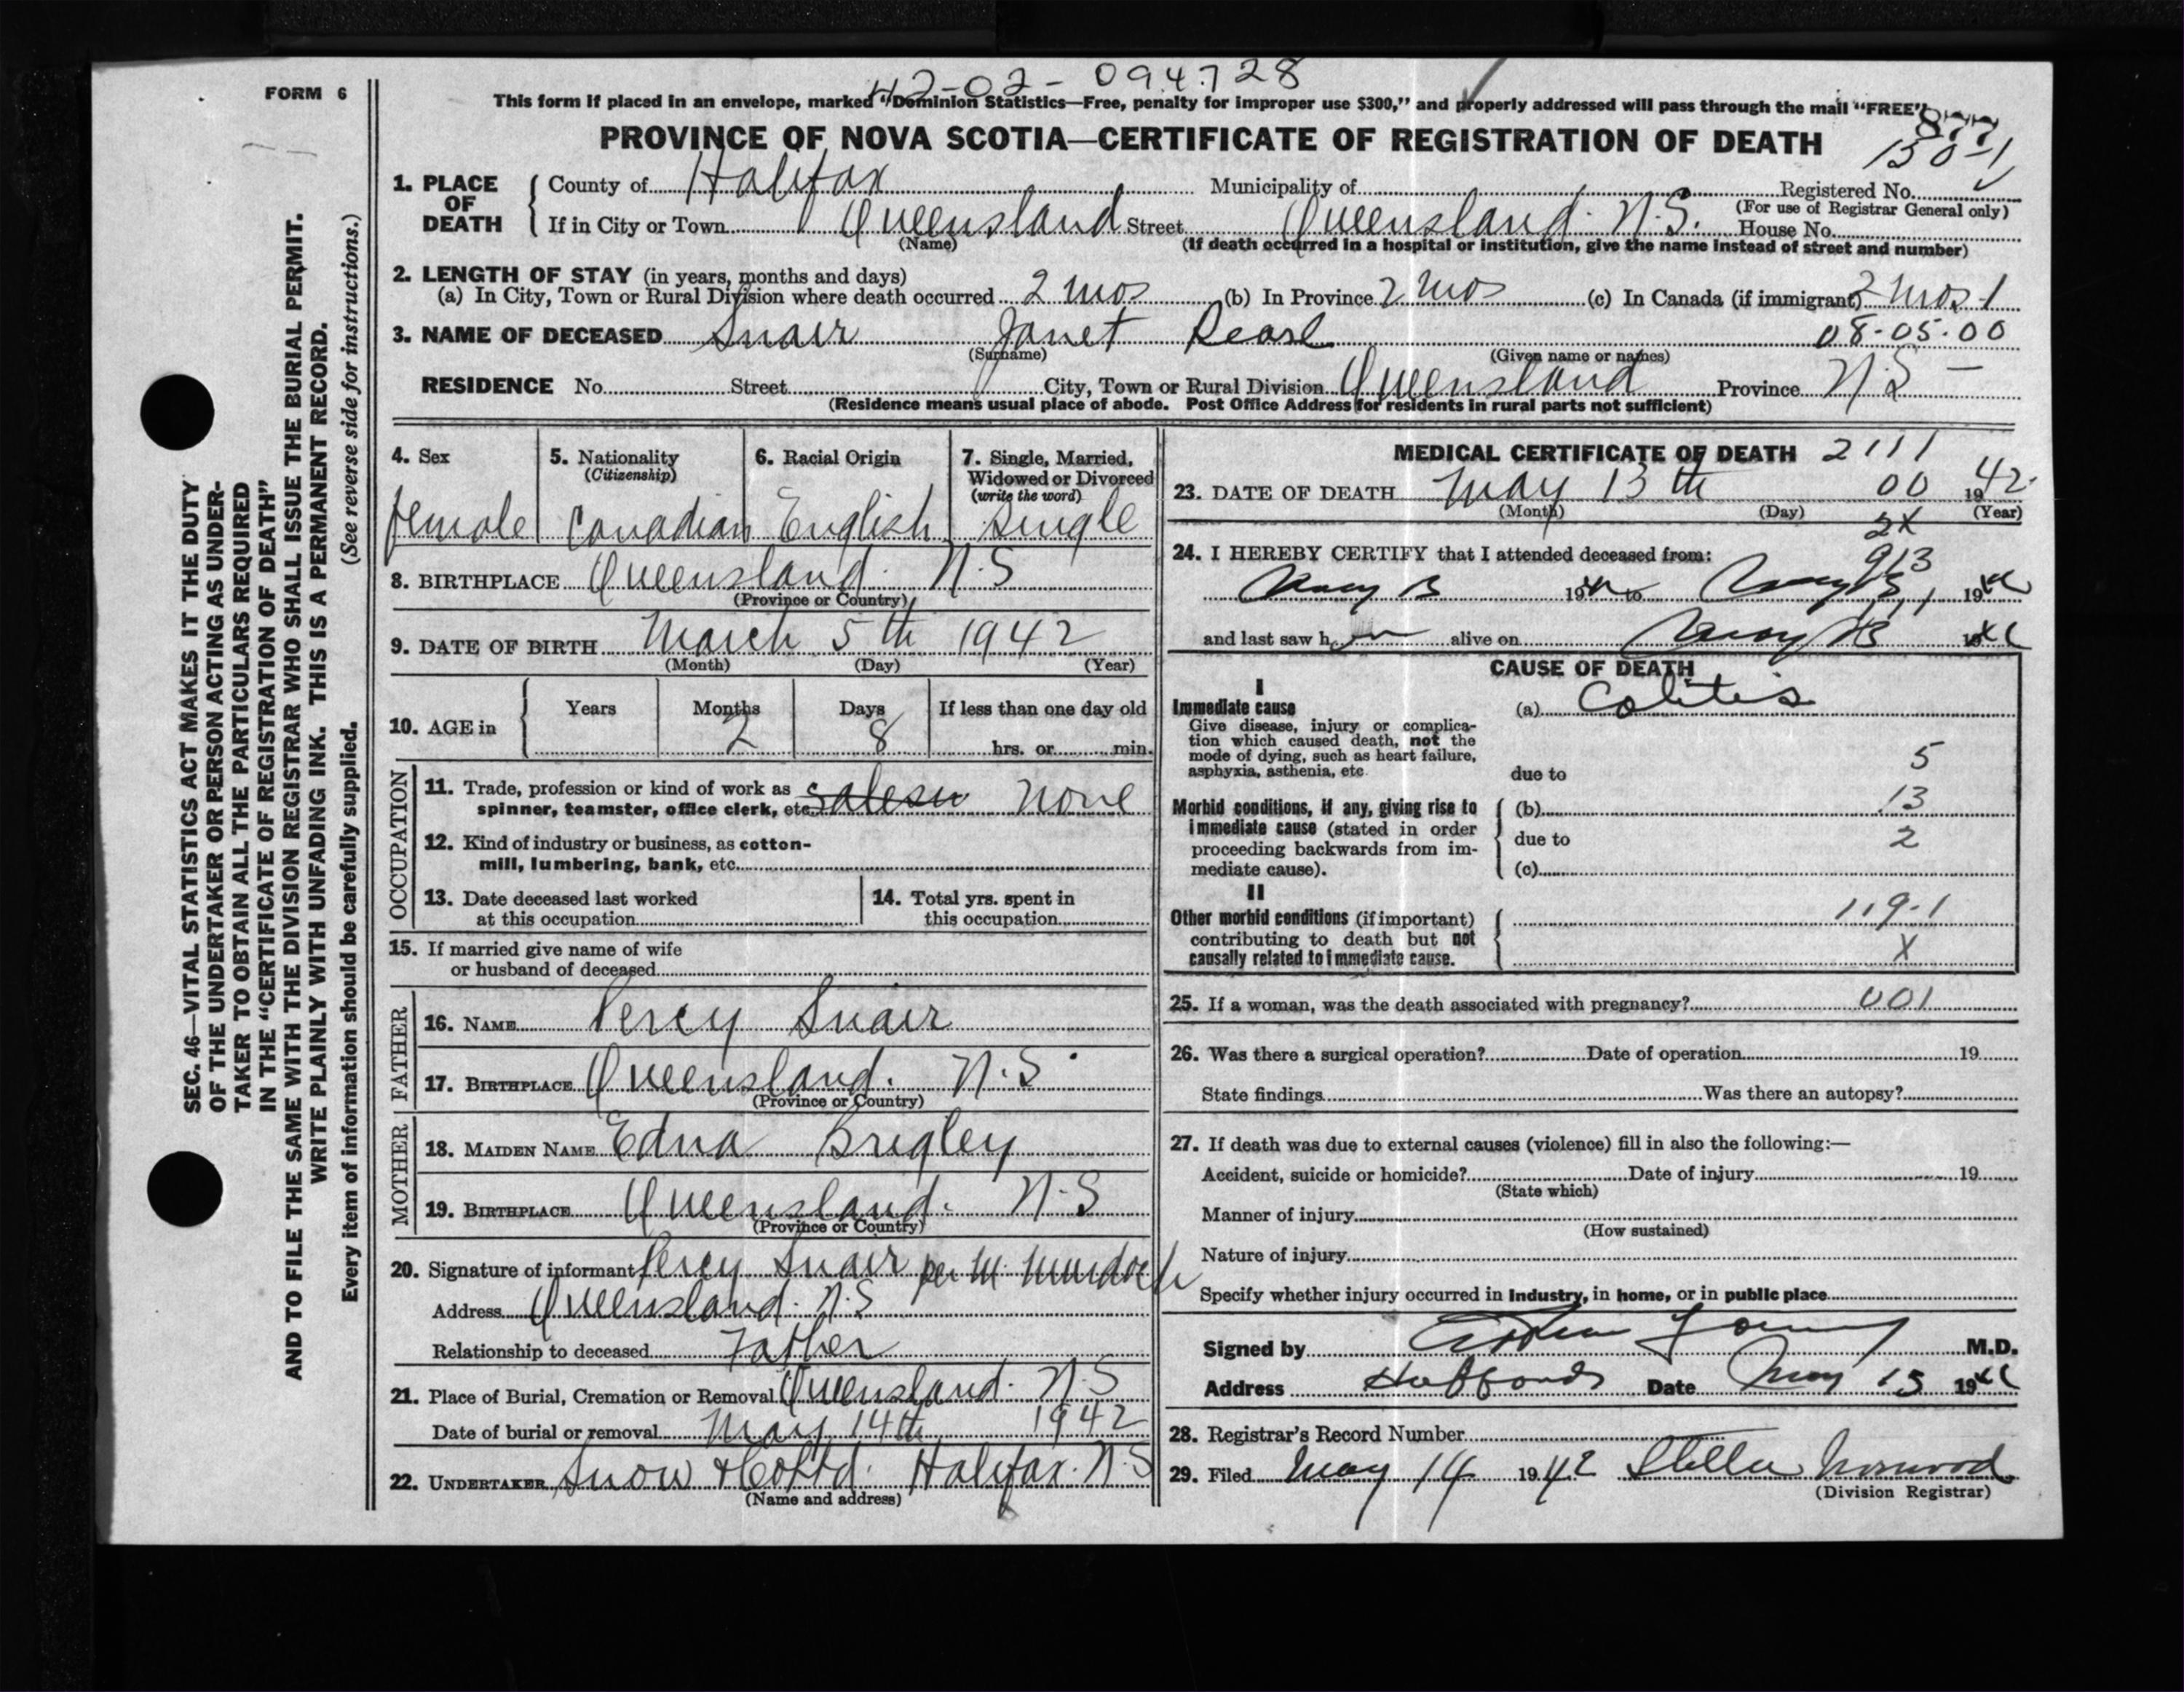 FORM 6
42-02-094728
This form if placed in an envelope, marked "Dominion Statistics—Free, penalty for improper use $300," and properly addressed will pass through the mail "FREE".
877
PROVINCE OF NOVA SCOTIA—CERTIFICATE OF REGISTRATION OF DEATH
130-1
1. PLACE OF DEATH County of Halifax Municipality of Registered No.
(For use of Registrar General only)
If in City or Town Queensland Street Queensland. N.S. House No.
(Name) (If death occurred in a hospital or institution, give the name instead of street and number)
2. LENGTH OF STAY (in years, months and days)
(a) In City, Town or Rural Division where death occurred 2 mos (b) In Province 2 mos (c) In Canada (if immigrant) 2 mos-1
3. NAME OF DECEASED Snair Janet Pearl 08-05-00
(Surname) (Given name or names)
RESIDENCE No. Street City, Town or Rural Division Queensland Province N.S —
(Residence means usual place of abode. Post Office Address for residents in rural parts not sufficient)
4. Sex female
5. Nationality (Citizenship) Canadian
6. Racial Origin English
7. Single, Married, Widowed or Divorced (write the word) Single
8. BIRTHPLACE Queensland. N.S
(Province or Country)
9. DATE OF BIRTH March 5th 1942
(Month) (Day) (Year)
10. AGE in Years Months Days If less than one day old
2 8 hrs. or min.
OCCUPATION
11. Trade, profession or kind of work as spinner, teamster, office clerk, etc. none
12. Kind of industry or business, as cotton-mill, lumbering, bank, etc.
13. Date deceased last worked at this occupation
14. Total yrs. spent in this occupation
15. If married give name of wife or husband of deceased
FATHER
16. NAME Percy Snair
17. BIRTHPLACE Queensland. N.S.
(Province or Country)
MOTHER
18. MAIDEN NAME Edna Brigley
19. BIRTHPLACE Queensland. N.S
(Province or Country)
20. Signature of informant Percy Snair per M. Murdoch
Address Queensland. N.S
Relationship to deceased Father
21. Place of Burial, Cremation or Removal Queensland. N.S
Date of burial or removal May 14th 1942
22. UNDERTAKER Snow & Co Ltd. Halifax. N.S
(Name and address)
MEDICAL CERTIFICATE OF DEATH 2111
23. DATE OF DEATH May 13th 00 1942
(Month) (Day) (Year)
2X
24. I HEREBY CERTIFY that I attended deceased from:
913
May 13 1942 to May 13, 1942
and last saw her alive on May 13 1942
CAUSE OF DEATH
I
Immediate cause
Give disease, injury or complication which caused death, not the mode of dying, such as heart failure, asphyxia, asthenia, etc.
(a) Colitis
5
due to
Morbid conditions, if any, giving rise to immediate cause (stated in order proceeding backwards from immediate cause).
(b) 13
due to 2
(c)
II
Other morbid conditions (if important) contributing to death but not causally related to immediate cause.
119-1
X
25. If a woman, was the death associated with pregnancy? 001
26. Was there a surgical operation? Date of operation 19
State findings Was there an autopsy?
27. If death was due to external causes (violence) fill in also the following:—
Accident, suicide or homicide? Date of injury 19
(State which)
Manner of injury
(How sustained)
Nature of injury
Specify whether injury occurred in Industry, in home, or in public place
Signed by Young M.D.
Address Hubbards Date May 13 1942
28. Registrar's Record Number
29. Filed May 14 1942 Stella Norwood
(Division Registrar)
SEC. 46—VITAL STATISTICS ACT MAKES IT THE DUTY
OF THE UNDERTAKER OR PERSON ACTING AS UNDER-
TAKER TO OBTAIN ALL THE PARTICULARS REQUIRED
IN THE "CERTIFICATE OF REGISTRATION OF DEATH"
AND TO FILE THE SAME WITH THE DIVISION REGISTRAR WHO SHALL ISSUE THE BURIAL PERMIT.
WRITE PLAINLY WITH UNFADING INK. THIS IS A PERMANENT RECORD.
Every item of information should be carefully supplied. (See reverse side for instructions.)